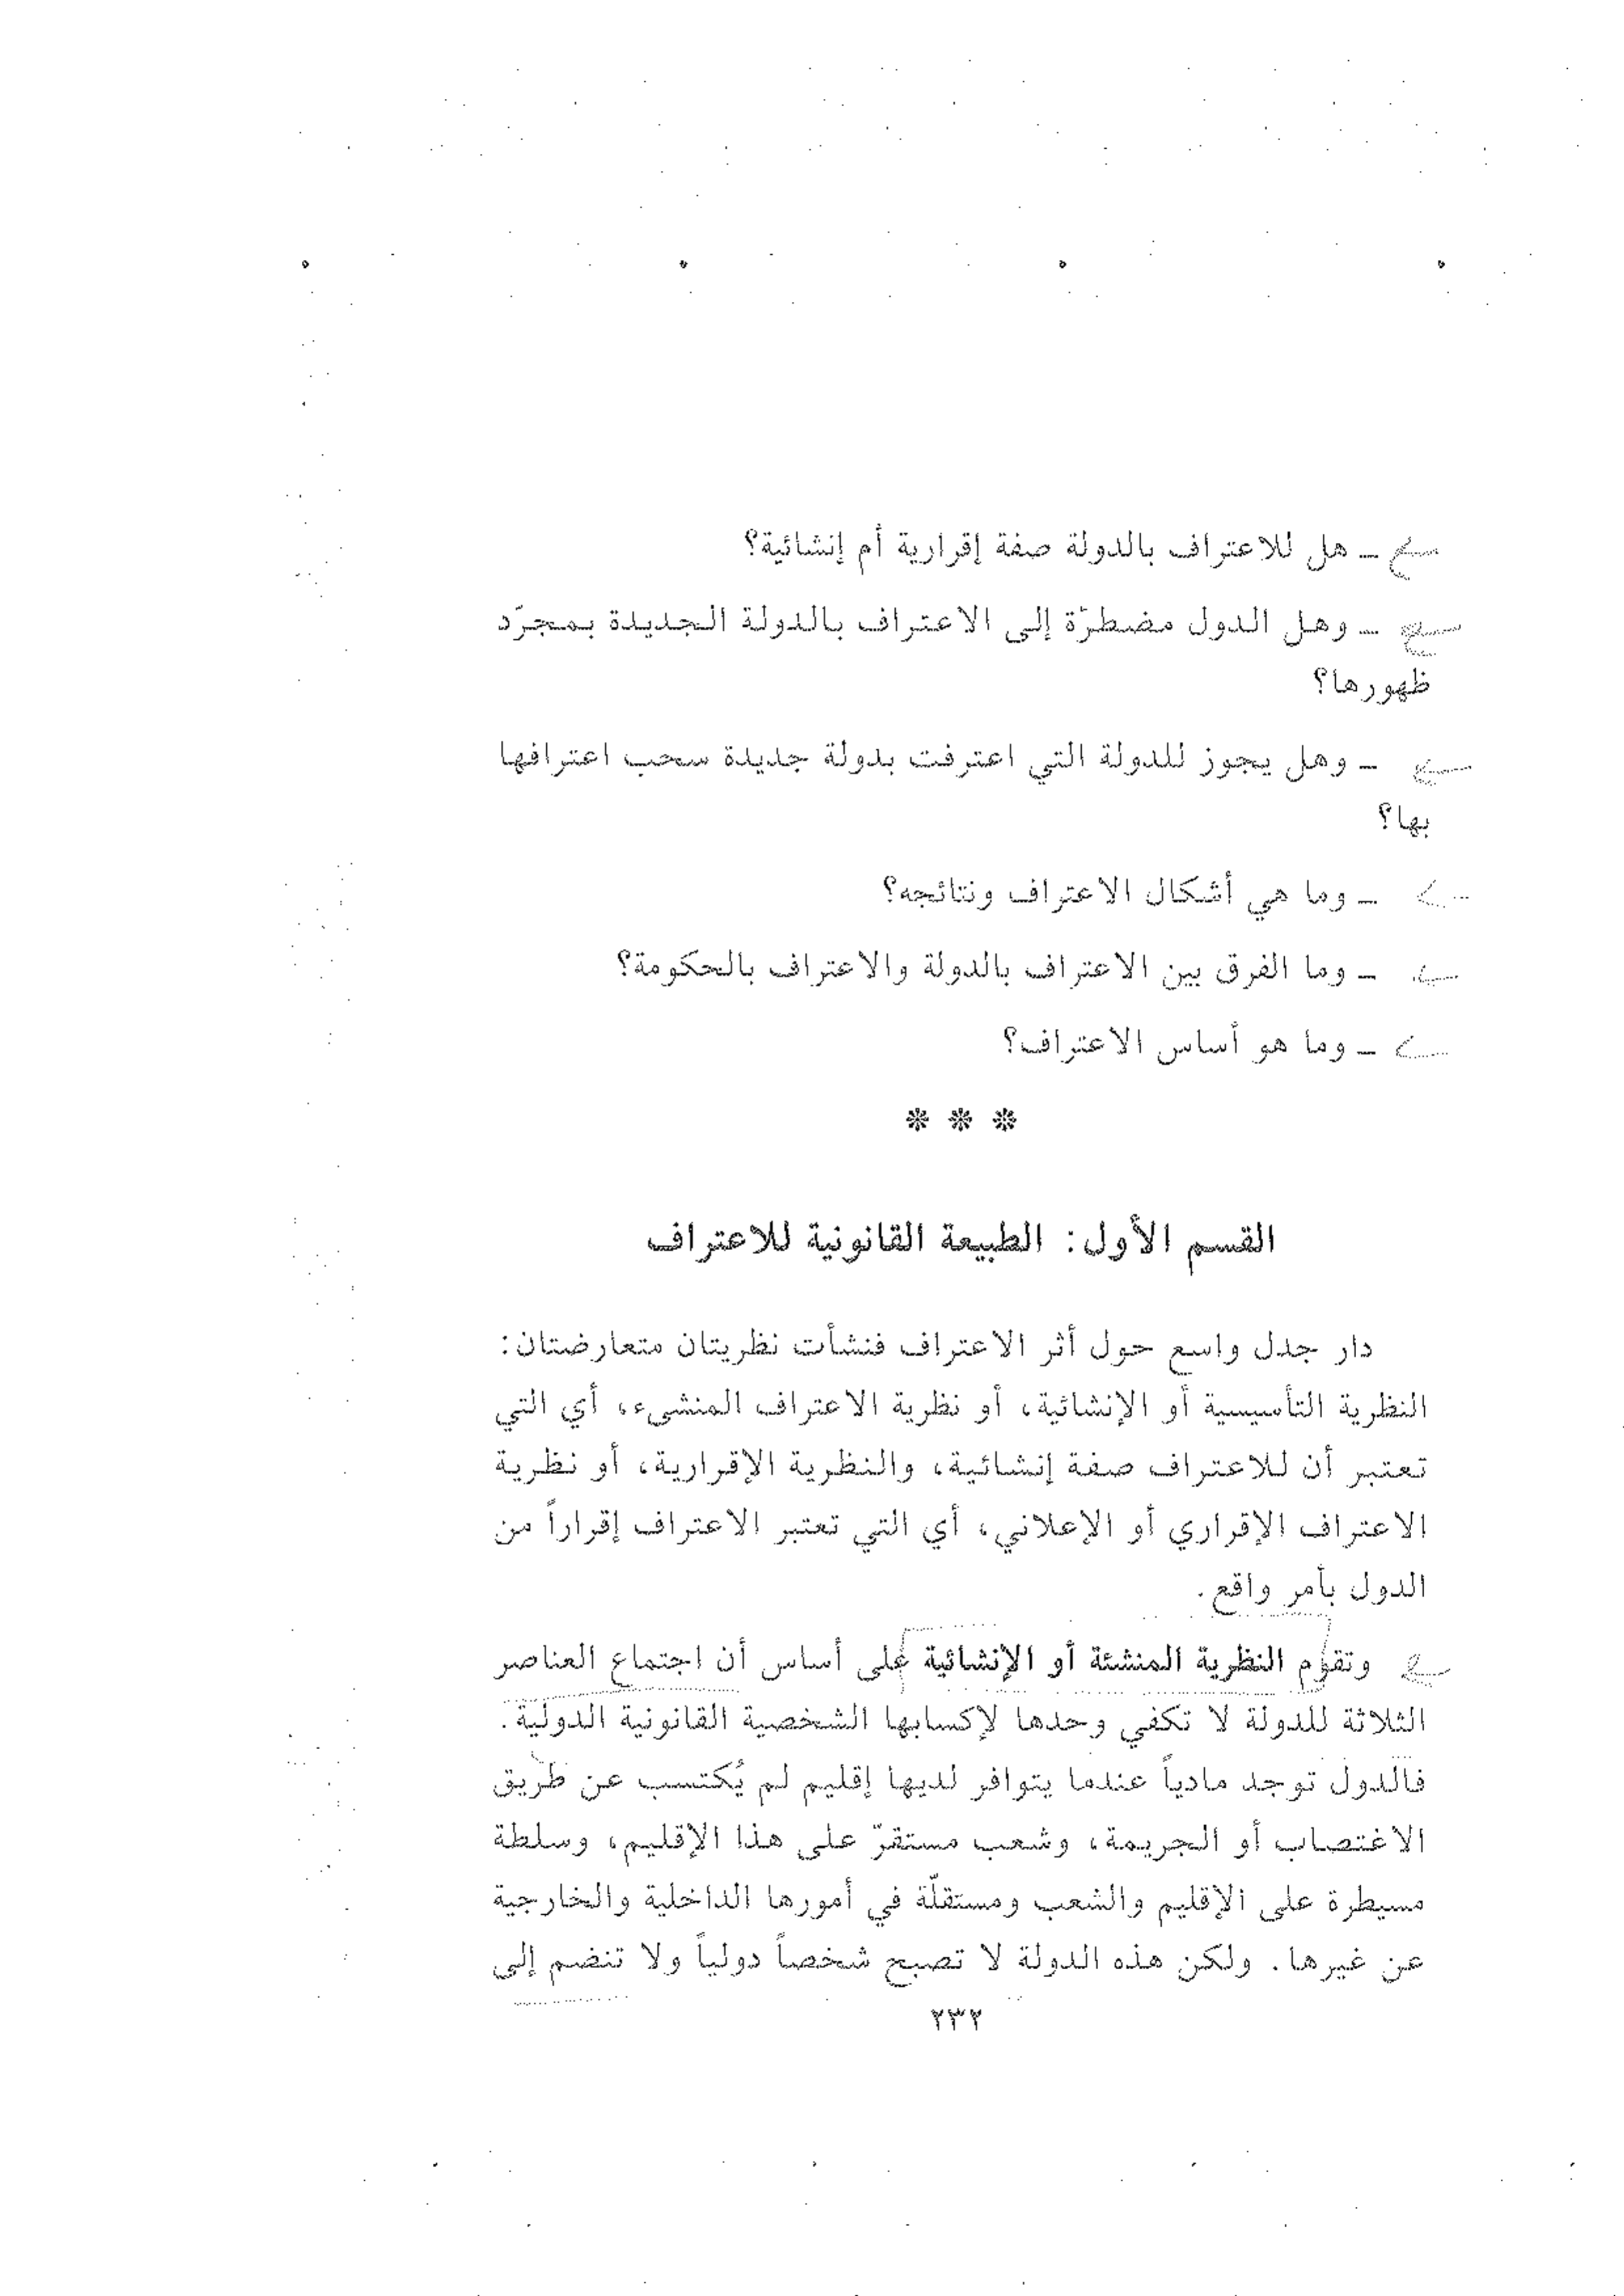 ـ هل للاعتراف بالدولة صفة إقرارية أم إنشائية؟
ـ وهل الدول مضطرّة إلى الاعتراف بالدولة الجديدة بمجرّد
ظهورها؟
ـ وهل يجوز للدولة التي اعترفت بدولة جديدة سحب اعترافها
بها؟
ـ وما هي أشكال الاعتراف ونتائجه؟
ـ وما الفرق بين الاعتراف بالدولة والاعتراف بالحكومة؟
ـ وما هو أساس الاعتراف؟
* * *
القسم الأول: الطبيعة القانونية للاعتراف
دار جدل واسع حول أثر الاعتراف فنشأت نظريتان متعارضتان:
النظرية التأسيسية أو الإنشائية، أو نظرية الاعتراف المنشىء، أي التي
تعتبر أن للاعتراف صفة إنشائية، والنظرية الإقرارية، أو نظرية
الاعتراف الإقراري أو الإعلاني، أي التي تعتبر الاعتراف إقراراً من
الدول بأمر واقع.
وتقوم النظرية المنشئة أو الإنشائية على أساس أن اجتماع العناصر
الثلاثة للدولة لا تكفي وحدها لإكسابها الشخصية القانونية الدولية.
فالدول توجد مادياً عندما يتوافر لديها إقليم لم يُكتسب عن طريق
الاغتصاب أو الجريمة، وشعب مستقرّ على هذا الإقليم، وسلطة
مسيطرة على الإقليم والشعب ومستقلّة في أمورها الداخلية والخارجية
عن غيرها. ولكن هذه الدولة لا تصبح شخصاً دولياً ولا تنضم إلى
٢٣٢